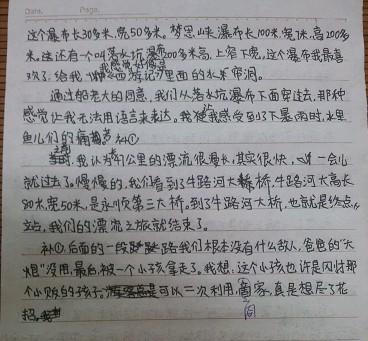 Date. Page.
这个瀑布长30多米,宽50多米。梦思峡瀑布长100米,宽7米,高200多
米。这还有一个叫落水坑瀑布200多米高,上窄下宽。这个瀑布我最喜
欢了,给我一种我感觉好像是《西游记》里面的水帘洞。
通过船老大的同意,我们从落水坑瀑布下面穿过去,那种
感觉让我无法用语言来表达。我感受到下暴雨时,水里
鱼儿们的 补①
我认为 公里的漂流很漫长,其实很快,一会儿
就过去了。慢慢的,我们看到了牛路河大桥,牛路河大高长
80米,宽50米,是永顺第三大桥,到了牛路河大桥,也就是终点
站,我们的漂流之旅就结束了。
补①,后面的一段路我们根本没有什么敌人,爸爸的“大
炮”没用,最后被一个小孩拿走了。我想:这个小孩也许是刚才那
个小贩的孩子。可以二次利用,商家真是想尽了花
招。